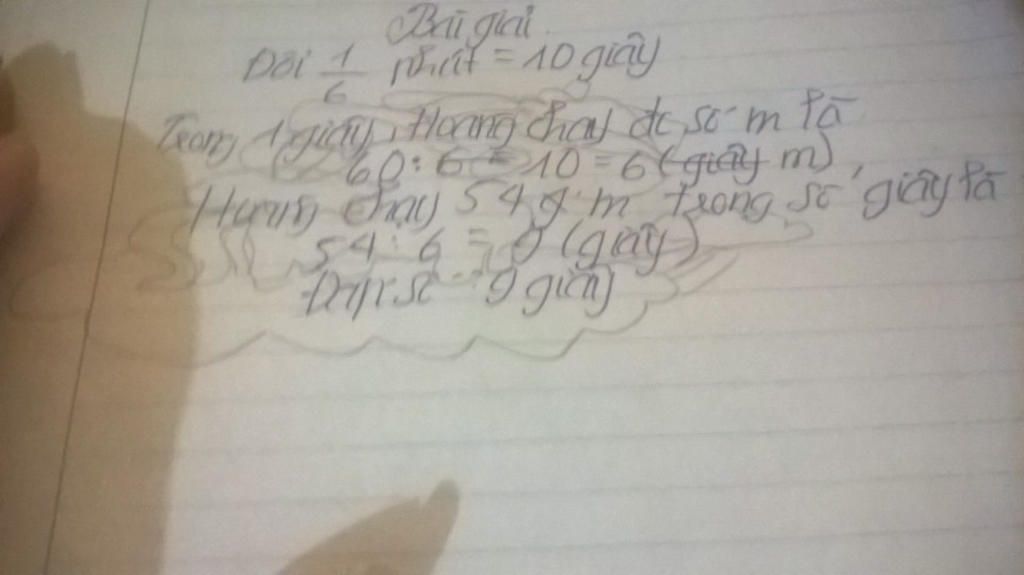 Bài giải
Đổi 1/6 phút = 10 giây
Trong 1 giây, Hương chạy đc số m là
60 : 6 = 10 = 6 (giây m)
Hương chạy 54 m trong số giây là
54 : 6 = 9 (giây)
Đáp số 9 giây